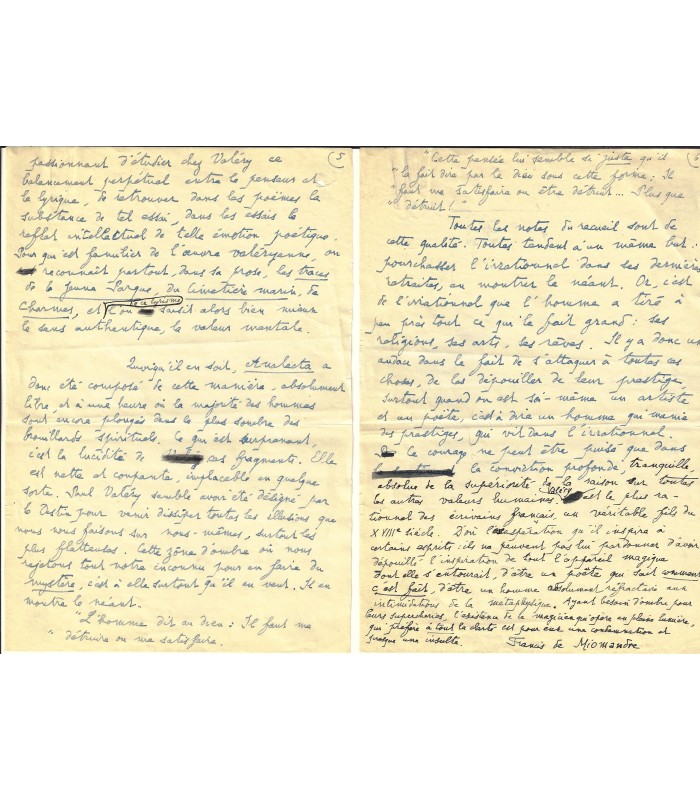 5
passionnant d'étudier chez Valéry ce
balancement perpétuel entre le penseur et
le lyrique, de retrouver dans les poèmes la
substance de tel essai, dans les essais le
reflet intellectuel de telle émotion poétique.
Pour qui est familier de l'œuvre valéryenne, on
reconnait partout, dans sa prose, les traces
de la Jeune Parque, du Cimetière marin, de
Charmes, et l'on saisit alors bien mieux
de ce lyrisme
le sens authentique, la valeur mentale.
Quoiqu'il en soit, Analecta a
donc été composé de cette manière, absolument
libre, et à une heure où la majorité des hommes
sont encore plongés dans le plus sombre des
brouillards spirituels. Ce qui est surprenant,
c'est la lucidité de ces fragments. Elle
est nette et coupante, implacable en quelque
sorte. Paul Valéry semble avoir été désigné par
le Destin pour venir dissiper toutes les illusions que
nous nous faisons sur nous-mêmes, surtout les
plus flatteuses. Cette zône d'ombre où nous
rejetons tout notre inconnu pour en faire du
mystère, c'est à elle surtout qu'il en veut. Il en
montre le néant.
"L'homme dit au dieu: Il faut me
" détruire ou me satisfaire.
6
"Cette pensée lui semble si juste qu'il
"la fait dire par le dieu sous cette forme: Il
"faut me satisfaire ou être détruit... Plus que
"détruit!"
Toutes les notes du recueil sont de
cette qualité. Toutes tendent à un même but:
pourchasser l'irrationnel dans ses dernières
retraites, en montrer le néant. Or, c'est
de l'irrationnel que l'homme a tiré à
peu près tout ce qui le fait grand: ses
religions, ses arts, ses rêves. Il y a donc une
audace dans le fait de s'attaquer à toutes ces
choses, de les dépouiller de leur prestige.
Surtout quand on est soi-même un artiste
et un poète, c'est à dire un homme qui manie
des prestiges, qui vit dans l'irrationnel.
le courage ne peut être puisé que dans
la conviction profonde, tranquille,
absolue de la supériorité de la raison sur toutes
les autres valeurs humaines. Valéry est le plus ra-
tionnel des écrivains français, un véritable fils du
XVIIIe siècle. D'où l'exaspération qu'il inspire à
certains esprits: ils ne peuvent pas lui pardonner d'avoir
dépouillé l'inspiration de tout l'appareil magique
dont elle s'entourait, d'être un poète qui sait comment
c'est fait, d'être un homme absolument réfractaire aux
intimidations de la métaphysique. Ayant besoin d'ombre pour
leurs supercheries, l'existence de la magicien qui opère en pleine lumière,
qui préfère à tout la clarté est pour eux une condamnation et
presque une insulte.
Francis de Miomandre